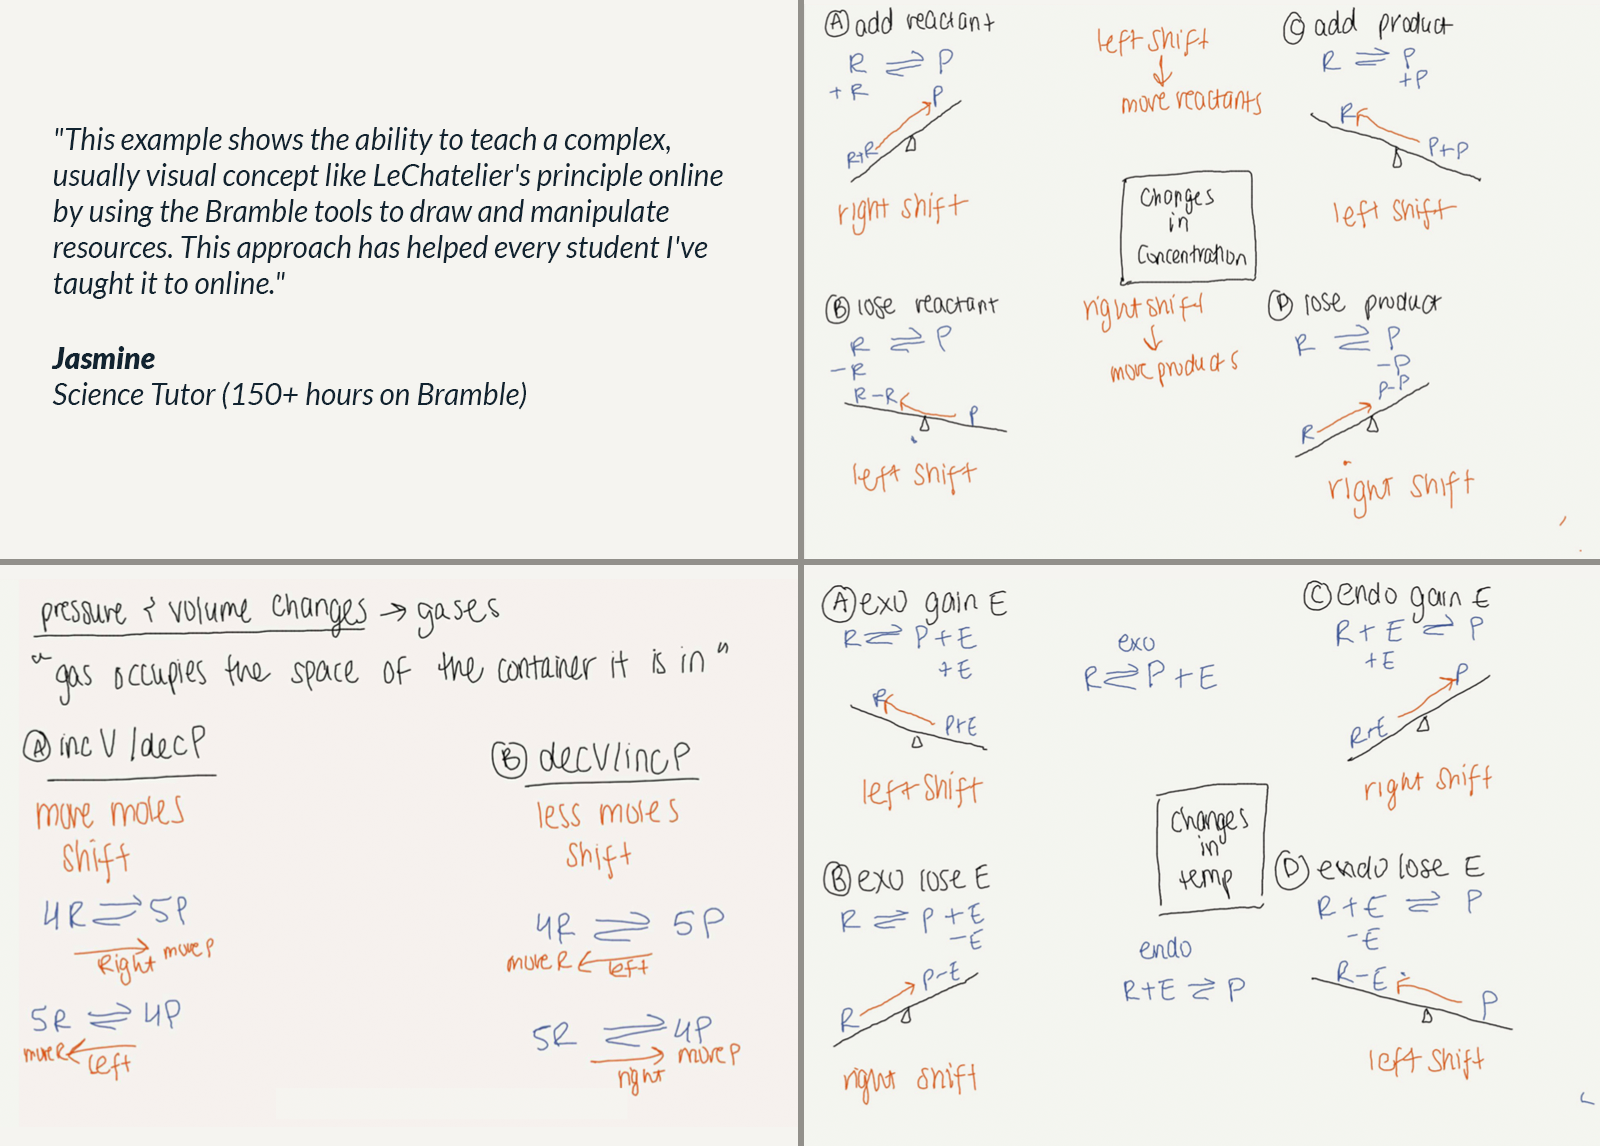 "This example shows the ability to teach a complex,
usually visual concept like LeChatelier's principle online
by using the Bramble tools to draw and manipulate
resources. This approach has helped every student I've
taught it to online."
Jasmine
Science Tutor (150+ hours on Bramble)
Ⓐ add reactant
R ⇌ P
+R
P
R+R
right shift
left shift
↓
more reactants
Ⓒ add product
R ⇌ P
+P
R
P+P
left shift
Changes
in
Concentration
Ⓑ lose reactant
R ⇌ P
-R
R-R
P
left shift
right shift
↓
more products
Ⓓ lose product
R ⇌ P
-P
P-P
R
right shift
pressure & volume changes → gases
"gas occupies the space of the container it is in"
Ⓐ inc V / dec P
more moles
shift
4R ⇌ 5P
→
Right more P
5R ⇌ 4P
more R ←
left
Ⓑ dec V / inc P
less moles
shift
4R ⇌ 5P
more R ← left
5R ⇌ 4P
→ more P
right
Ⓐ exo gain E
R ⇌ P + E
+E
R
P+E
left shift
exo
R ⇌ P + E
Ⓒ endo gain E
R + E ⇌ P
+E
P
R+E
right shift
Changes
in
temp
Ⓑ exo lose E
R ⇌ P + E
-E
P-E
R
right shift
endo
R+E ⇌ P
Ⓓ endo lose E
R+E ⇌ P
-E
R-E
P
left shift